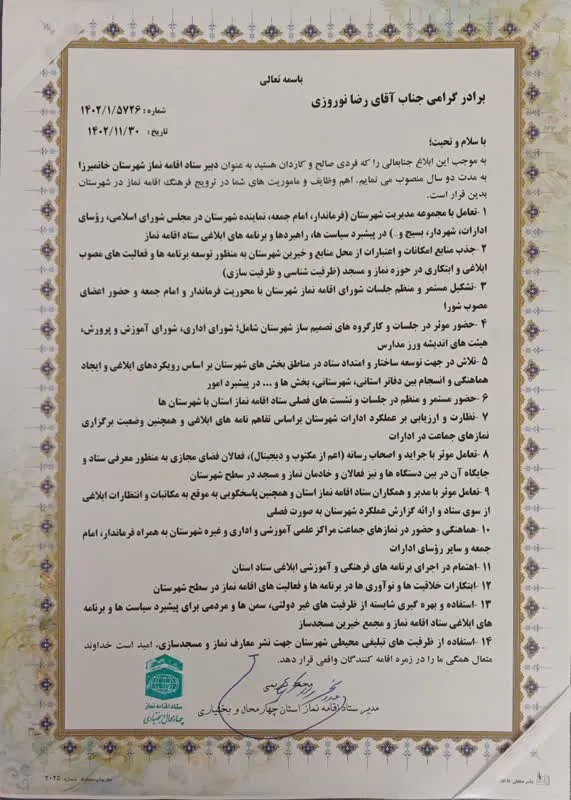 باسمه تعالی
برادر گرامی جناب آقای رضا نوروزی
شماره : ۱۴۰۲/۱/۵۷۲۶
تاریخ : ۱۴۰۲/۱۱/۳۰
با سلام و تحیت؛
به موجب این ابلاغ جنابعالی را که فردی صالح و کاردان هستید به عنوان دبیر ستاد اقامه نماز شهرستان خانمیرزا
به مدت دو سال منصوب می نمایم. اهم وظایف و ماموریت های شما در ترویج فرهنگ اقامه نماز در شهرستان
بدین قرار است.
۱ -تعامل با مجموعه مدیریت شهرستان (فرماندار، امام جمعه، نماینده شهرستان در مجلس شورای اسلامی، رؤسای
ادارات، شهردار، بسیج و..) در پیشبرد سیاست ها، راهبردها و برنامه های ابلاغی ستاد اقامه نماز
۲ -جذب منابع امکانات و اعتبارات از محل منابع و خیرین شهرستان به منظور توسعه برنامه ها و فعالیت های مصوب
ابلاغی و ابتکاری در حوزه نماز و مسجد (ظرفیت شناسی و ظرفیت سازی)
۳ -تشکیل مستمر و منظم جلسات شورای اقامه نماز شهرستان با محوریت فرماندار و امام جمعه و حضور اعضای
مصوب شورا
۴ -حضور موثر در جلسات و کارگروه های تصمیم ساز شهرستان شامل؛ شورای اداری، شورای آموزش و پرورش،
هیئت های اندیشه ورز مدارس
۵ -تلاش در جهت توسعه ساختار و امتداد ستاد در مناطق بخش های شهرستان بر اساس رویکردهای ابلاغی و ایجاد
هماهنگی و انسجام بین دفاتر استانی، شهرستانی، بخش ها و ... در پیشبرد امور
۶ -حضور مستمر و منظم در جلسات و نشست های فصلی ستاد اقامه نماز استان یا شهرستان ها
۷ -نظارت و ارزیابی بر عملکرد ادارات شهرستان براساس تفاهم نامه های ابلاغی و همچنین وضعیت برگزاری
نمازهای جماعت در ادارات
۸ -تعامل موثر با جراید و اصحاب رسانه (اعم از مکتوب و دیجیتال)، فعالان فضای مجازی به منظور معرفی ستاد و
جایگاه آن در بین دستگاه ها و نیز فعالان و خادمان نماز و مسجد در سطح شهرستان
۹ -تعامل موثر با مدیر و همکاران ستاد اقامه نماز استان و همچنین پاسخگویی به موقع به مکاتبات و انتظارات ابلاغی
از سوی ستاد و ارائه گزارش عملکرد شهرستان به صورت فصلی
۱۰ -هماهنگی و حضور در نمازهای جماعت مراکز علمی آموزشی و اداری و غیره شهرستان به همراه فرماندار، امام
جمعه و سایر رؤسای ادارات
۱۱ -اهتمام در اجرای برنامه های فرهنگی و آموزشی ابلاغی ستاد استان
۱۲ -ابتکارات خلاقیت ها و نوآوری ها در برنامه ها و فعالیت های اقامه نماز در سطح شهرستان
۱۳ -استفاده و بهره گیری شایسته از ظرفیت های غیر دولتی، سمن ها و مردمی برای پیشبرد سیاست ها و برنامه
های ابلاغی ستاد اقامه نماز و مجمع خیرین مسجدساز
۱۴ -استفاده از ظرفیت های تبلیغی محیطی شهرستان جهت نشر معارف نماز و مسجدسازی. امید است خداوند
متعال همگی ما را در زمره اقامه کنندگان واقعی قرار دهد.
مدیر ستاد اقامه نماز استان چهارمحال و بختیاری
ستاد اقامه نماز
چهارمحال و بختیاری